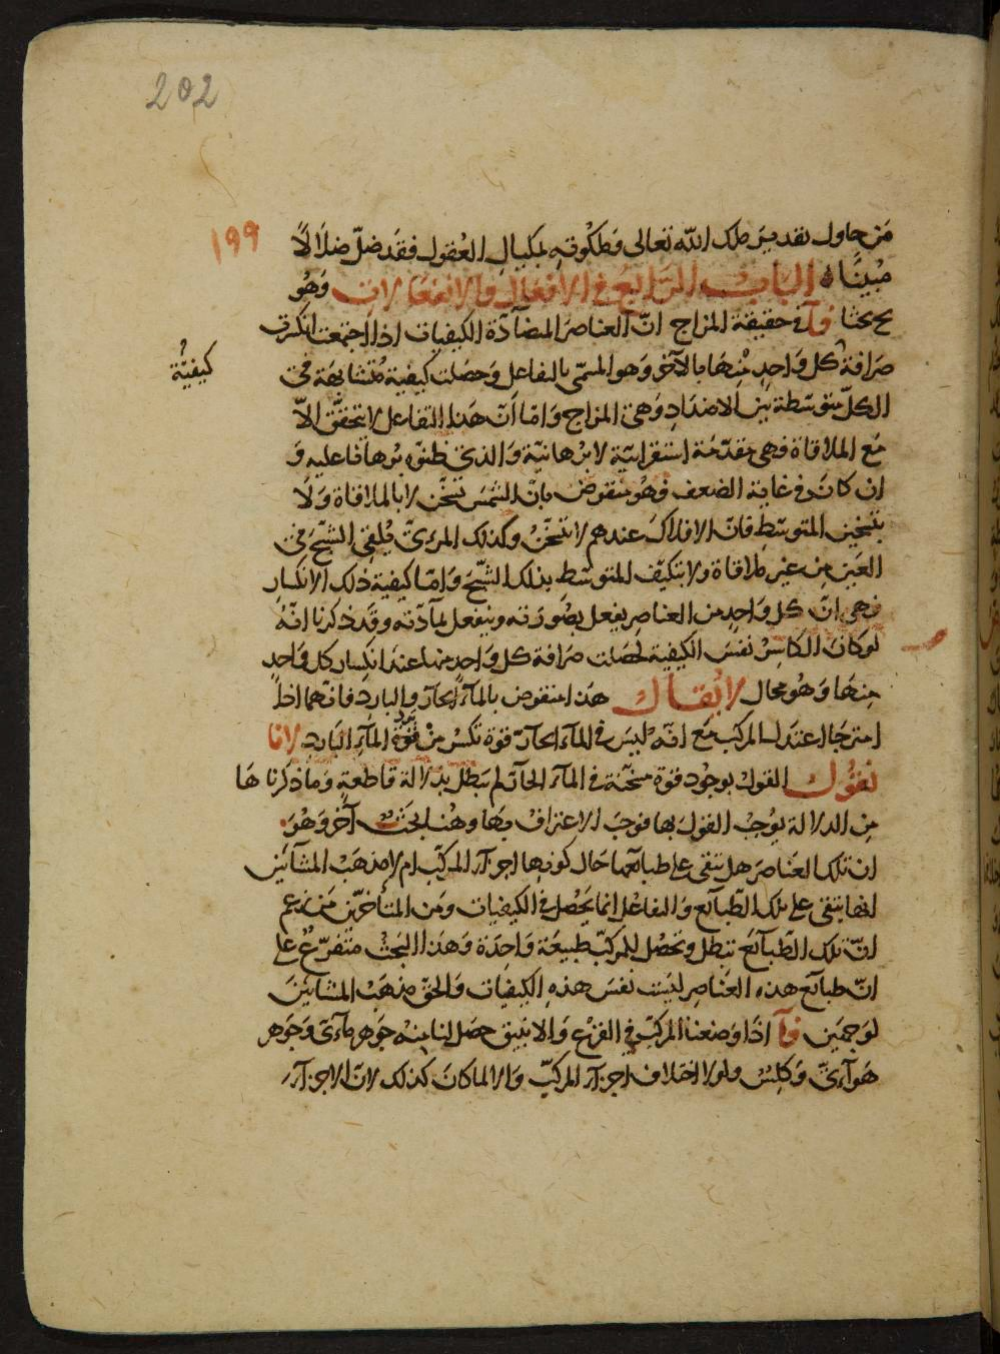 202
١٩٩
مَن حاول تقديسَ ملك الله تعالى وملكوته بمكيالِ العُقول فقد ضلّ ضلالًا
مُبينًا ۞ الباب الرابع في الافعال والانفعالات وهُو
يح بحثا آ في حقيقة المزاج انّ العناصر المضادّة الكيفيات اذا اجتمعت انكسرت
صرافة كل واحدٍ منها بالآخر وهو المسمّى بالتفاعل وحصلت كيفية متشابهة في
كيفيّة
الكلّ متوسّطة بين الاضدادِ وهي المزاج وامّا انّ هذا التفاعل لا يتحقّق الّا
مع الملاقاة فهي مقدّمة استقرائيّة لا برهانيّة والذي ظنّوه برهانًا عليه و
ان كان في غاية الضعف فهو منقوض بانّ الشمس تسخّن لا بالملاقاة ولا
بتسخين المتوسّط فانّ الافلاك عندهم لا تتسخّن وكذلك المرئيّ يُلقي الشبح في
العين من غير ملاقاة ولا يتكيّف المتوسّط بذلك الشبح وامّا كيفية ذلك الانكسار
فهي انّ كل واحدٍ من العناصر يفعل بصورته وينفعل بمادّته وقد ذكرنا انّه
لو كان الكاسر نفس الكيفية لحصلت صرافة كل واحدٍ منها عند انكسار كل واحدٍ
منها وهو محال لا يُقال هذا منقوض بالماء الحارّ والبارد فانهما اذا
امتزجا اعتدل المركب مع انّه ليس في الماء الحارّ قوة تكسر من قوّة الماء البارد لانا
برد
نقول القول بوجود قوّة مسخّنة في الماء الحارّ لم يبطل بدلالة قاطعةٍ وما ذكرناها
من الدلالة يوجب القول بها فوجب الاعتراف بها وهنا بحث آخر وهو
ان تلك العناصر هل تبقى على طبائعها حال كونها اجزاء المركّب ام لا مذهب المشائين
انها تبقى على تلك الطبائع والتفاعل انما يحصل في الكيفيات ومن المتأخرين من زعم
انّ تلك الطبائع تبطل وتحصل للمركب طبيعة واحدة وهذا البحث متفرّع على
انّ طبائع هذه العناصر ليست نفس هذه الكيفيات والحق مذهب المشائين
لوجهين آ اذا وضعنا المركب في القرع والانبيق حصل لنا منه جوهر مائيّ وجوهر
هوائيّ وكلس ولولا اختلاف اجزاء المركّب والا لما كان كذلك لانّ الاجزاء